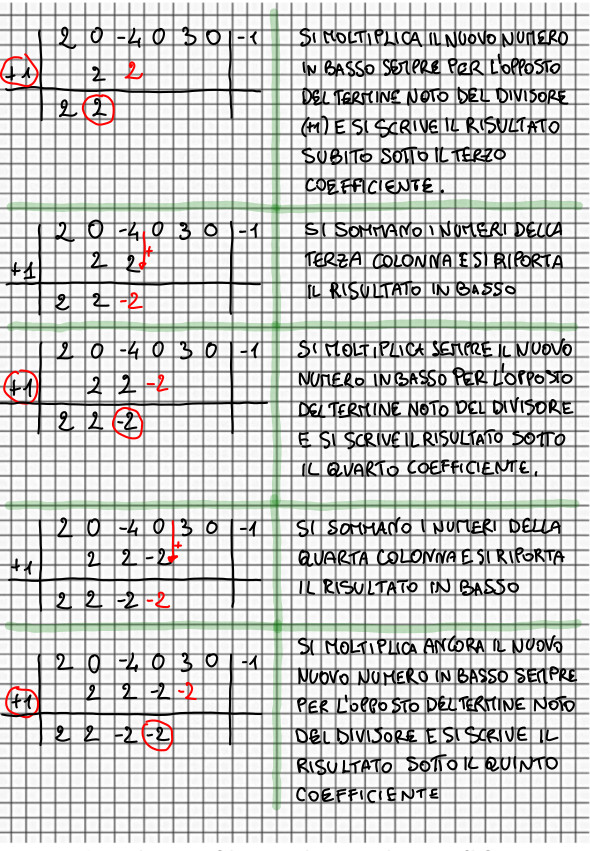 2 0 -4 0 3 0 | -1
+1 2 2
2 2
SI MOLTIPLICA IL NUOVO NUMERO
IN BASSO SEMPRE PER L'OPPOSTO
DEL TERMINE NOTO DEL DIVISORE
(+1) E SI SCRIVE IL RISULTATO
SUBITO SOTTO IL TERZO
COEFFICIENTE.
2 0 -4 0 3 0 | -1
+
+1 2 2
2 2 -2
SI SOMMANO I NUMERI DELLA
TERZA COLONNA E SI RIPORTA
IL RISULTATO IN BASSO
2 0 -4 0 3 0 | -1
+1 2 2 -2
2 2 -2
SI MOLTIPLICA SEMPRE IL NUOVO
NUMERO IN BASSO PER L'OPPOSTO
DEL TERMINE NOTO DEL DIVISORE
E SI SCRIVE IL RISULTATO SOTTO
IL QUARTO COEFFICIENTE.
2 0 -4 0 3 0 | -1
+
+1 2 2 -2
2 2 -2 -2
SI SOMMANO I NUMERI DELLA
QUARTA COLONNA E SI RIPORTA
IL RISULTATO IN BASSO
2 0 -4 0 3 0 | -1
+1 2 2 -2 -2
2 2 -2 -2
SI MOLTIPLICA ANCORA IL NUOVO
NUOVO NUMERO IN BASSO SEMPRE
PER L'OPPOSTO DEL TERMINE NOTO
DEL DIVISORE E SI SCRIVE IL
RISULTATO SOTTO IL QUINTO
COEFFICIENTE